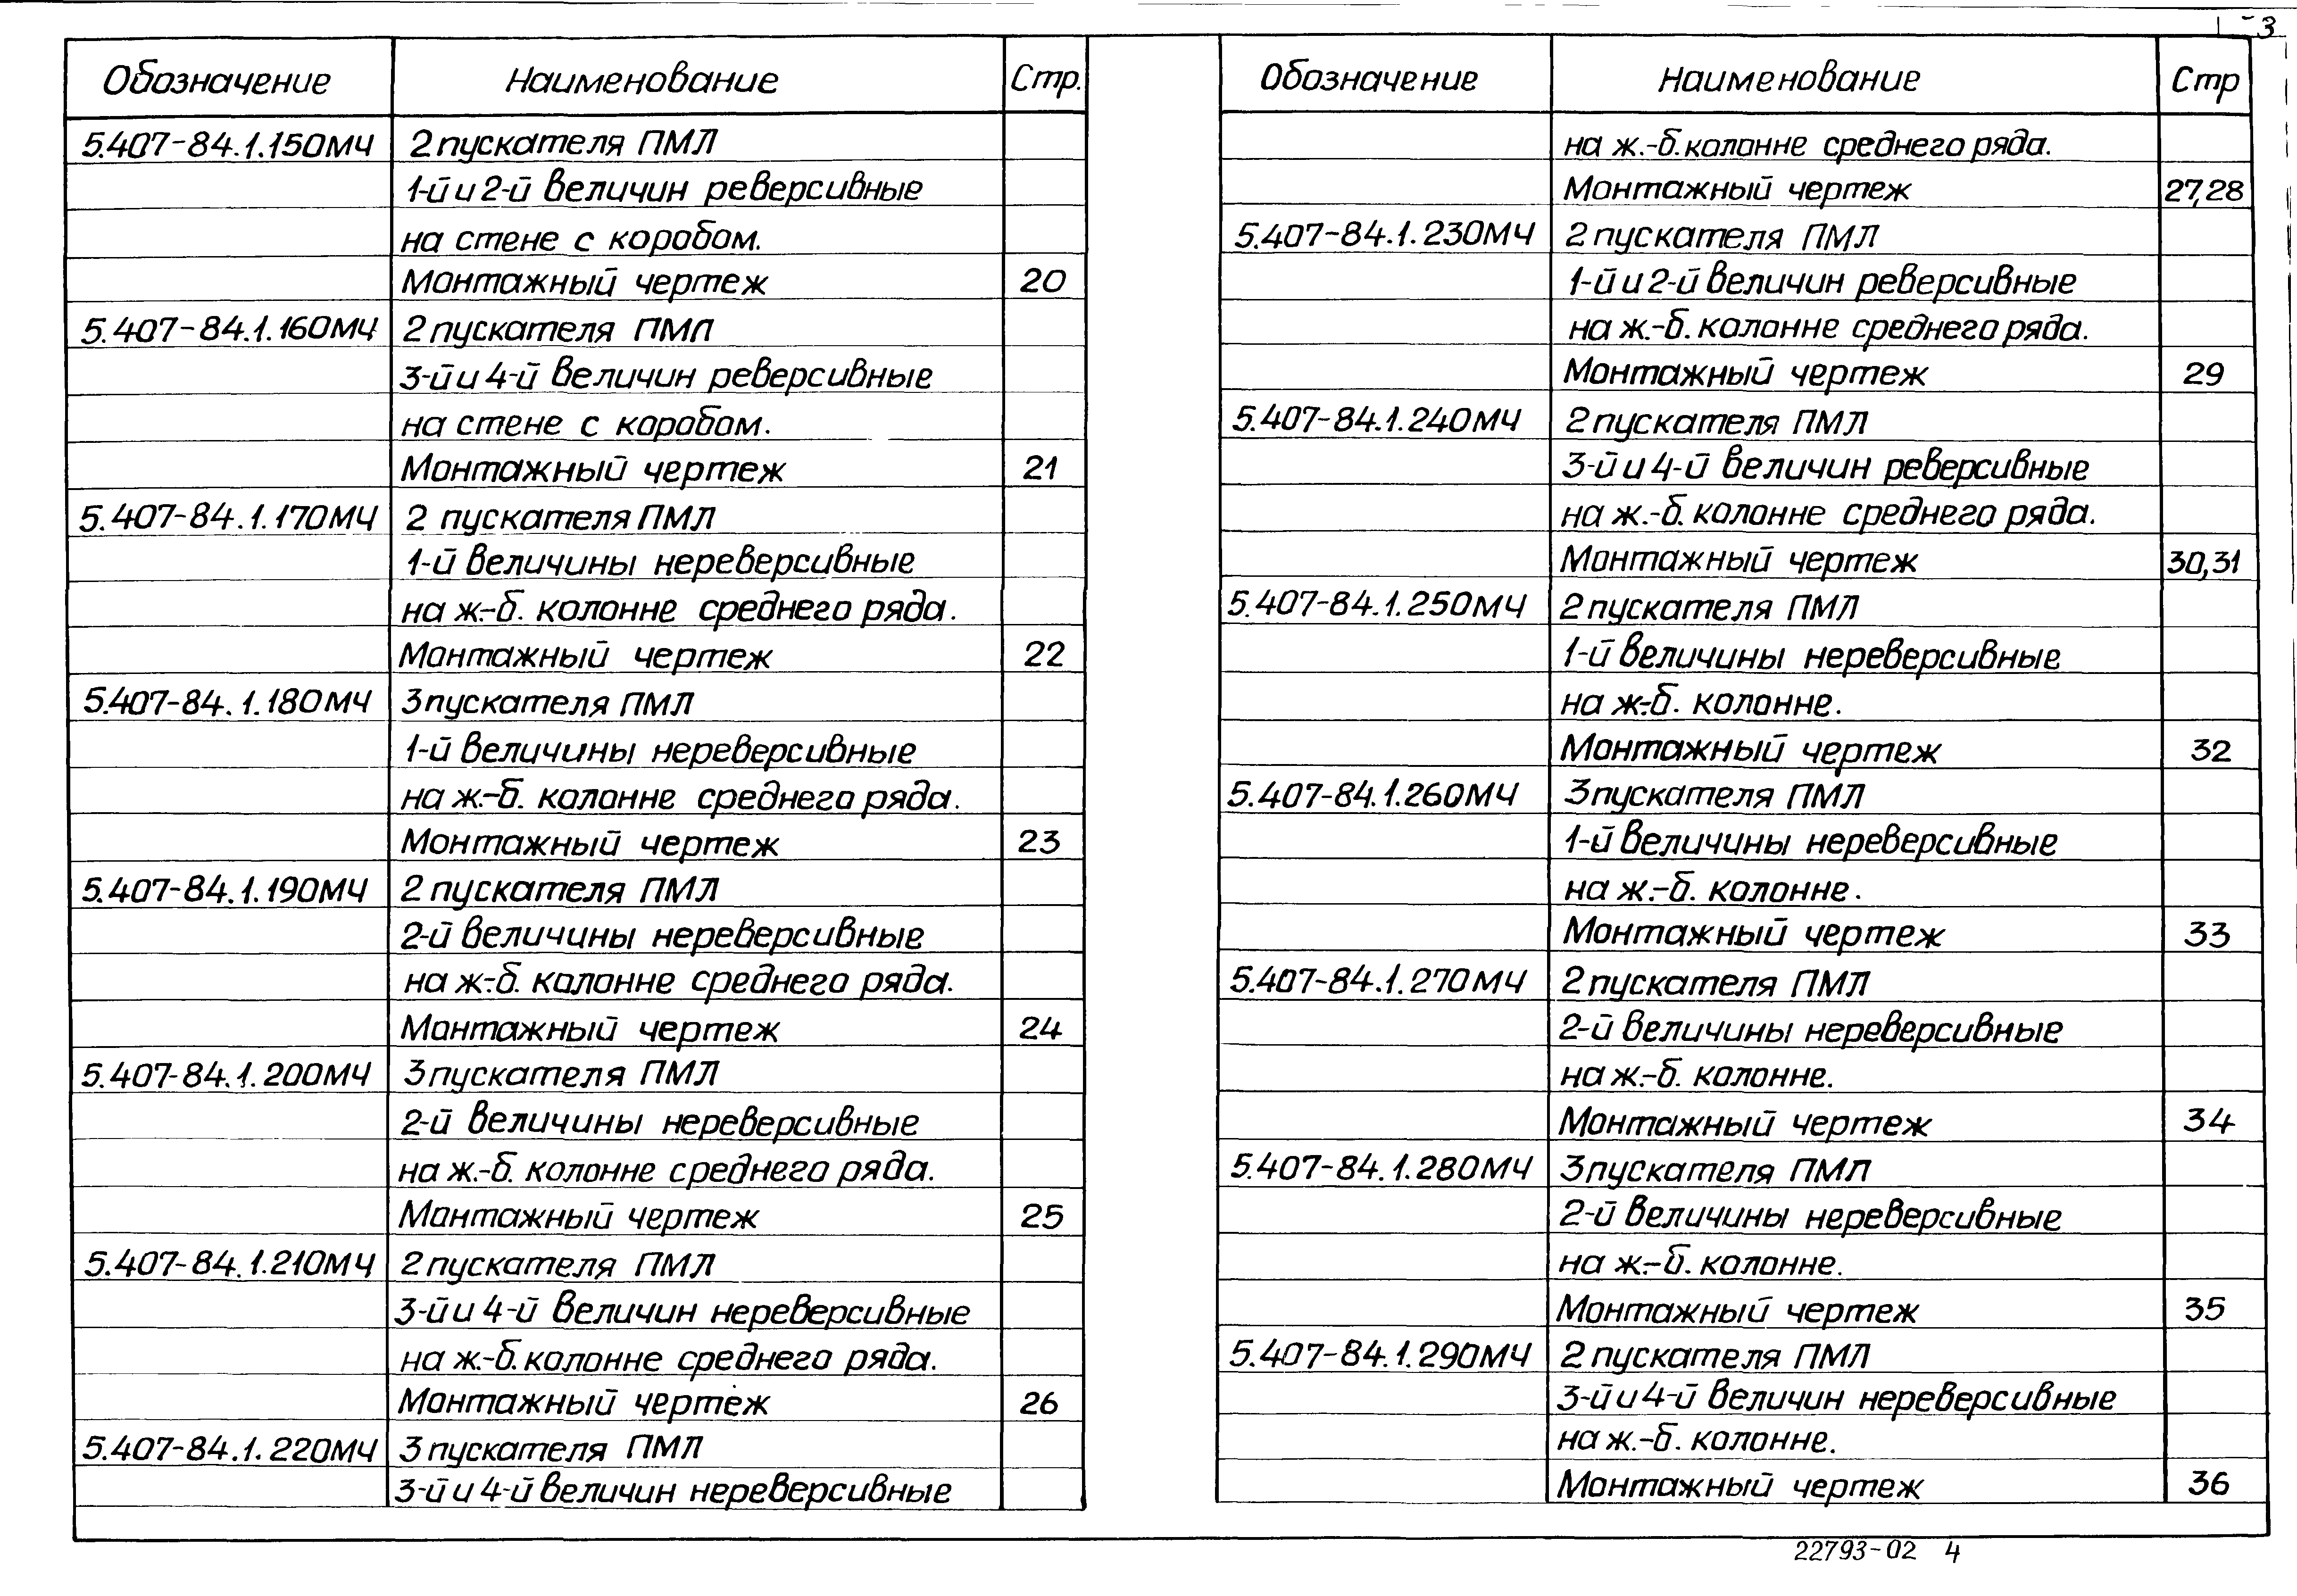 3
Обозначение Наименование Стр.
5.407-84.1.150МЧ 2 пускателя ПМЛ
1-й и 2-й величин реверсивные
на стене с коробом.
Монтажный чертеж 20
5.407-84.1.160МЧ 2 пускателя ПМЛ
3-й и 4-й величин реверсивные
на стене с коробом.
Монтажный чертеж 21
5.407-84.1.170МЧ 2 пускателя ПМЛ
1-й величины нереверсивные
на ж.-б. колонне среднего ряда.
Монтажный чертеж 22
5.407-84.1.180МЧ 3 пускателя ПМЛ
1-й величины нереверсивные
на ж.-б. колонне среднего ряда.
Монтажный чертеж 23
5.407-84.1.190МЧ 2 пускателя ПМЛ
2-й величины нереверсивные
на ж.-б. колонне среднего ряда.
Монтажный чертеж 24
5.407-84.1.200МЧ 3 пускателя ПМЛ
2-й величины нереверсивные
на ж.-б. колонне среднего ряда.
Монтажный чертеж 25
5.407-84.1.210МЧ 2 пускателя ПМЛ
3-й и 4-й величин нереверсивные
на ж.-б. колонне среднего ряда.
Монтажный чертеж 26
5.407-84.1.220МЧ 3 пускателя ПМЛ
3-й и 4-й величин нереверсивные
Обозначение Наименование Стр
на ж.-б. колонне среднего ряда.
Монтажный чертеж 27,28
5.407-84.1.230МЧ 2 пускателя ПМЛ
1-й и 2-й величин реверсивные
на ж.-б. колонне среднего ряда.
Монтажный чертеж 29
5.407-84.1.240МЧ 2 пускателя ПМЛ
3-й и 4-й величин реверсивные
на ж.-б. колонне среднего ряда.
Монтажный чертеж 30,31
5.407-84.1.250МЧ 2 пускателя ПМЛ
1-й величины нереверсивные
на ж.-б. колонне.
Монтажный чертеж 32
5.407-84.1.260МЧ 3 пускателя ПМЛ
1-й величины нереверсивные
на ж.-б. колонне.
Монтажный чертеж 33
5.407-84.1.270МЧ 2 пускателя ПМЛ
2-й величины нереверсивные
на ж.-б. колонне.
Монтажный чертеж 34
5.407-84.1.280МЧ 3 пускателя ПМЛ
2-й величины нереверсивные
на ж.-б. колонне.
Монтажный чертеж 35
5.407-84.1.290МЧ 2 пускателя ПМЛ
3-й и 4-й величин нереверсивные
на ж.-б. колонне.
Монтажный чертеж 36
22793-02 4